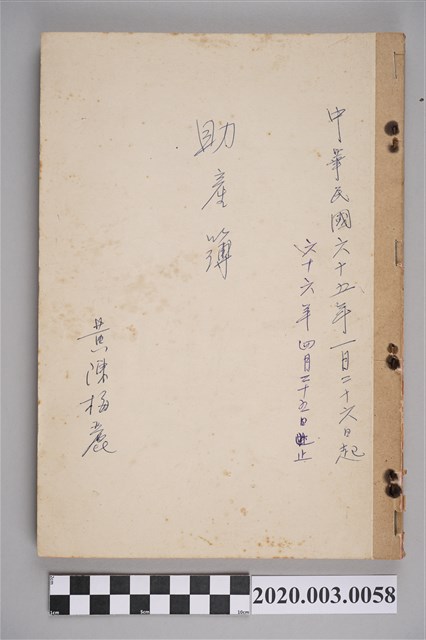 中華民國六十五年一月二十六日起
六十六年四月二十五日止
助產簿
黃陳
1cm 5cm 10cm
2020.003.0058